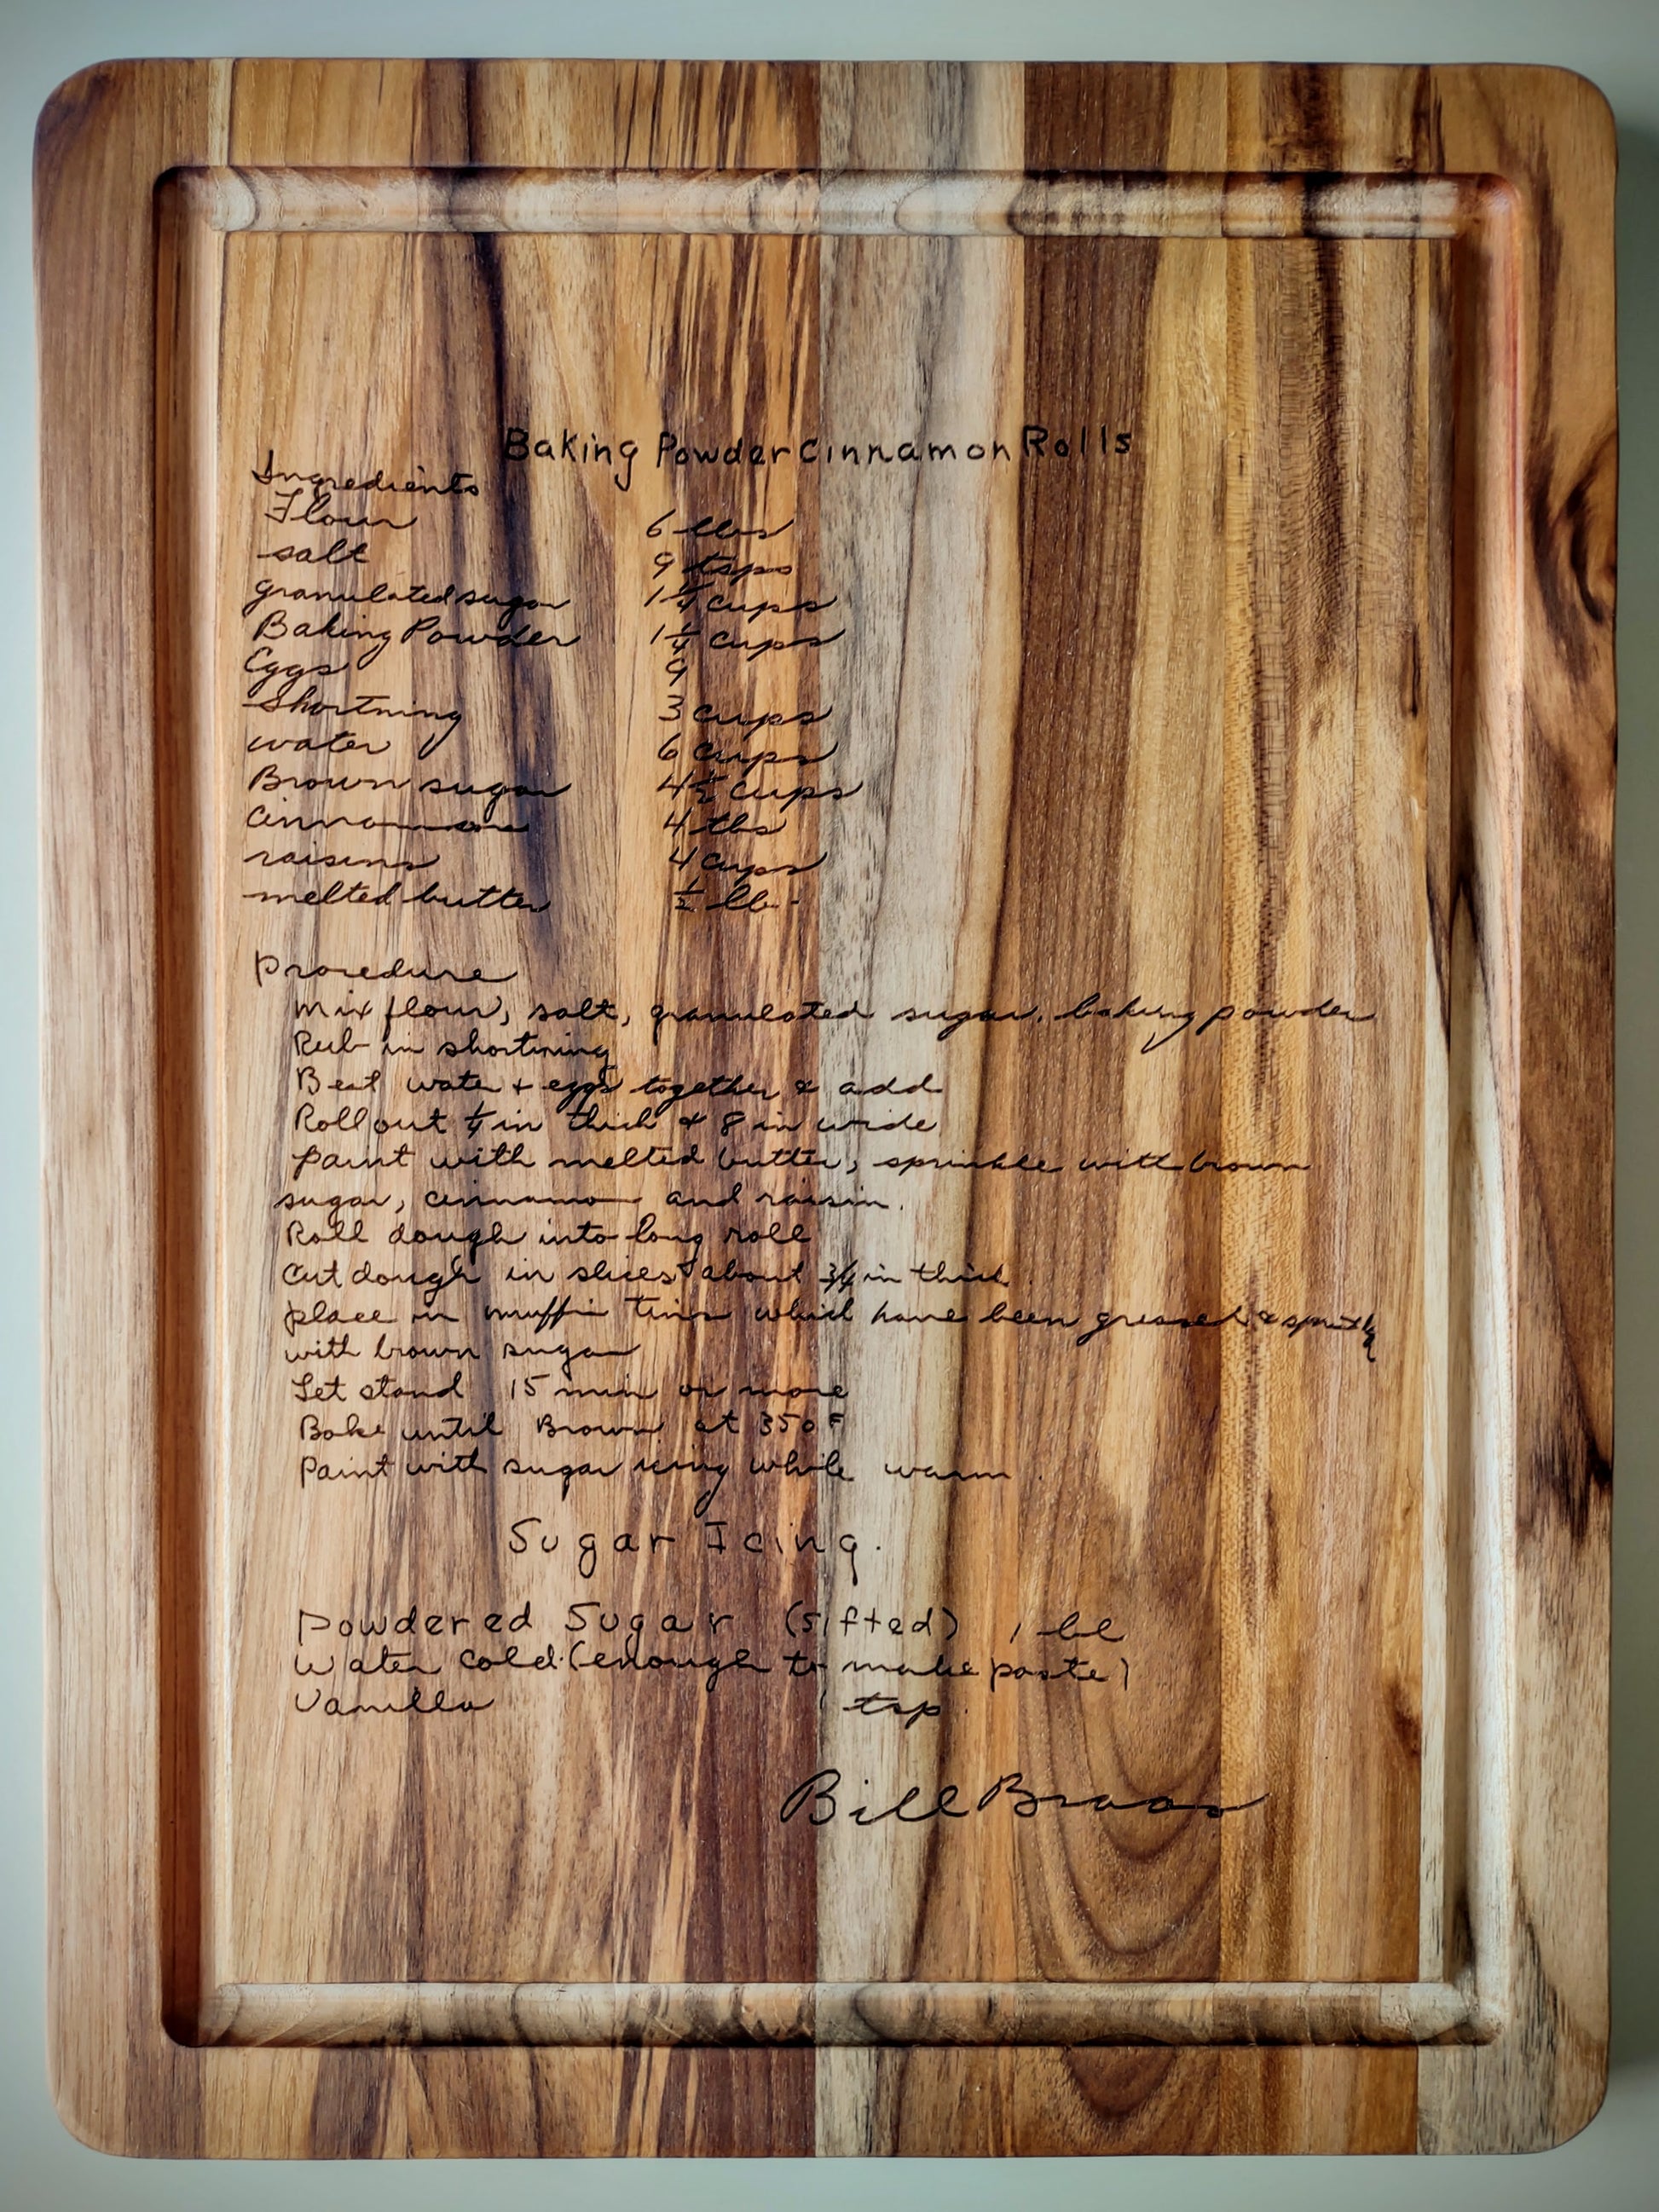 Baking Powder Cinnamon Rolls
Ingredients
Flour 6 lbs
salt 9 tsps
granulated sugar 1 1/4 cups
Baking Powder 1 1/4 cups
Eggs 9
Shortning 3 cups
water 6 cups
Brown sugar 4 1/2 cups
Cinnamon 4 tbs
raisins 4 cups
melted butter 1/2 lb.
Procedure
Mix flour, salt, granulated sugar, baking powder
Rub in shortning
Beat water + eggs together & add
Roll out 1/4 in thick & 8 in wide
Paint with melted butter, sprinkle with brown
sugar, cinnamon and raisin.
Roll dough into long roll
Cut dough in slices about 3/4 in thick
place in muffin tins which have been greased &
with brown sugar
Let stand 15 min or more
Bake until Brown at 350 F
Paint with sugar icing while warm.
Sugar Icing.
Powdered Sugar (sifted) 1
Water cold (enough to make paste)
Vanilla 1 tsp.
Bill